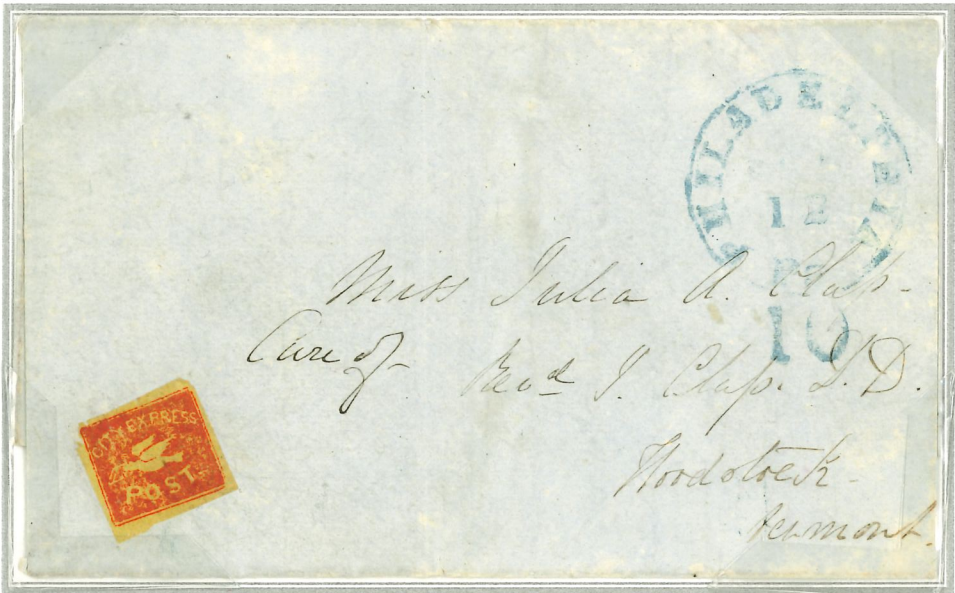 PHILADELPHIA
12
10
Miss Julia A. Clap-
Care of
Revd J. Clap. D.D.
Woodstock-
Vermont.
CITY EXPRESS
POST